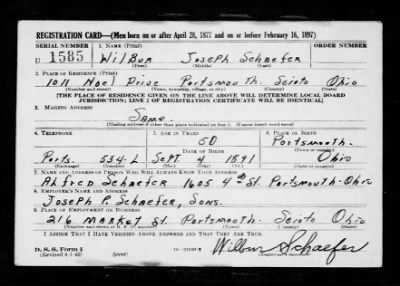 REGISTRATION CARD—(Men born on or after April 28, 1877 and on or before February 16, 1897)
SERIAL NUMBER 1. NAME (Print) ORDER NUMBER
U 1585 Wilbur Joseph Schaefer
(First) (Middle) (Last)
2. PLACE OF RESIDENCE (Print)
1011 Noel Drive Portsmouth. Scioto Ohio
(Number and street) (Town, township, village, or city) (County) (State)
[THE PLACE OF RESIDENCE GIVEN ON THE LINE ABOVE WILL DETERMINE LOCAL BOARD
JURISDICTION; LINE 2 OF REGISTRATION CERTIFICATE WILL BE IDENTICAL]
3. MAILING ADDRESS
Same
[Mailing address if other than place indicated on line 2. If same insert word same]
4. TELEPHONE 5. AGE IN YEARS 6. PLACE OF BIRTH
50 Portsmouth.
DATE OF BIRTH (Town or county)
Ports. 534-L Sept. 4 1891 Ohio
(Exchange) (Number) (Mo.) (Day) (Yr.) (State or country)
7. NAME AND ADDRESS OF PERSON WHO WILL ALWAYS KNOW YOUR ADDRESS
Alfred Schaefer 1605 4th St. Portsmouth-Ohio
8. EMPLOYER'S NAME AND ADDRESS
Joseph P. Schaefer, Sons.
9. PLACE OF EMPLOYMENT OR BUSINESS
216 Market St. Portsmouth. Scioto Ohio
(Number and street or R. F. D. number) (Town) (County) (State)
I AFFIRM THAT I HAVE VERIFIED ABOVE ANSWERS AND THAT THEY ARE TRUE.
D. S. S. Form 1
(Revised 4-1-42) (over)
Wilbur Schaefer